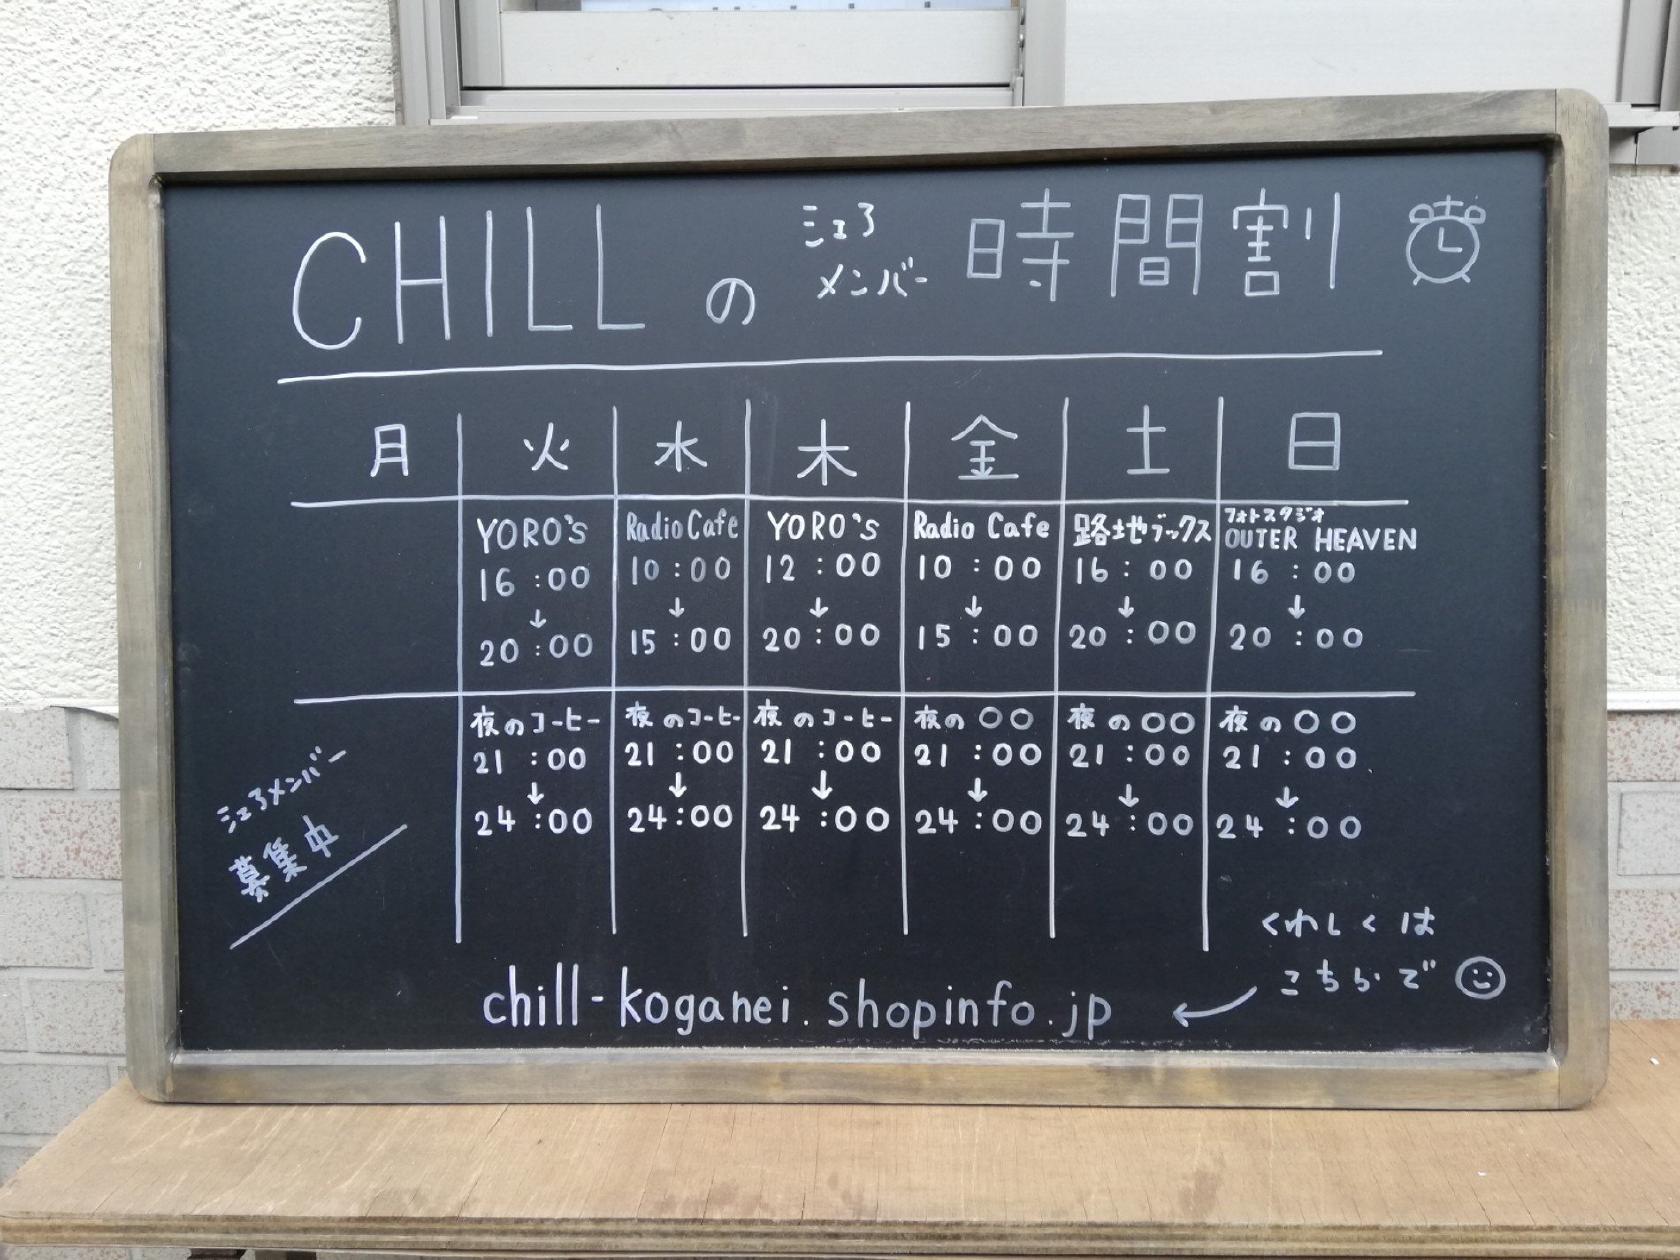 CHILL の シェア メンバー 時間割
月 火 水 木 金 土 日
YORO's
16:00
↓
20:00
Radio Cafe
10:00
↓
15:00
YORO's
12:00
↓
20:00
Radio Cafe
10:00
↓
15:00
路地ブックス
16:00
↓
20:00
フォトスタジオ
OUTER HEAVEN
16:00
↓
20:00
夜のコーヒー
21:00
↓
24:00
夜のコーヒー
21:00
↓
24:00
夜のコーヒー
21:00
↓
24:00
夜の〇〇
21:00
↓
24:00
夜の〇〇
21:00
↓
24:00
夜の〇〇
21:00
↓
24:00
シェアメンバー
募集中
くわしくは
こちらで
chill-koganei.shopinfo.jp ←